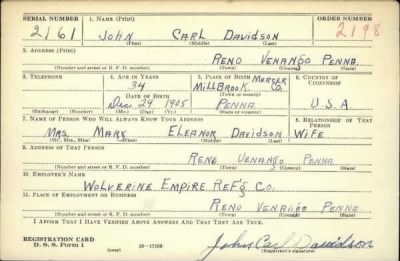 SERIAL NUMBER 1. NAME (Print) ORDER NUMBER
2161 JOHN CARL DAVIDSON 2198
(First) (Middle) (Last)
2. ADDRESS (Print)
RENO VENANGO PENNA.
(Number and street or R. F. D. number) (Town) (County) (State)
3. TELEPHONE 4. AGE IN YEARS 5. PLACE OF BIRTH 6. COUNTRY OF CITIZENSHIP
34 MERCER
MILLBROOK CO.
DATE OF BIRTH (Town or county)
Dec 29 1905 PENNA U.S.A.
(Exchange) (Number) (Mo.) (Day) (Yr.) (State or country)
7. NAME OF PERSON WHO WILL ALWAYS KNOW YOUR ADDRESS 8. RELATIONSHIP OF THAT PERSON
MRS. MARY ELEANOR DAVIDSON WIFE
(Mr., Mrs., Miss) (First) (Middle) (Last)
9. ADDRESS OF THAT PERSON
RENO VENANGO PENNA
(Number and street or R. F. D. number) (Town) (County) (State)
10. EMPLOYER'S NAME
WOLVERINE EMPIRE REF'G CO.
11. PLACE OF EMPLOYMENT OR BUSINESS
RENO VENANGO PENNA
(Number and street or R. F. D. number) (Town) (County) (State)
I AFFIRM THAT I HAVE VERIFIED ABOVE ANSWERS AND THAT THEY ARE TRUE.
REGISTRATION CARD
D. S. S. Form 1 (over) John Carl Davidson
(Registrant's signature)